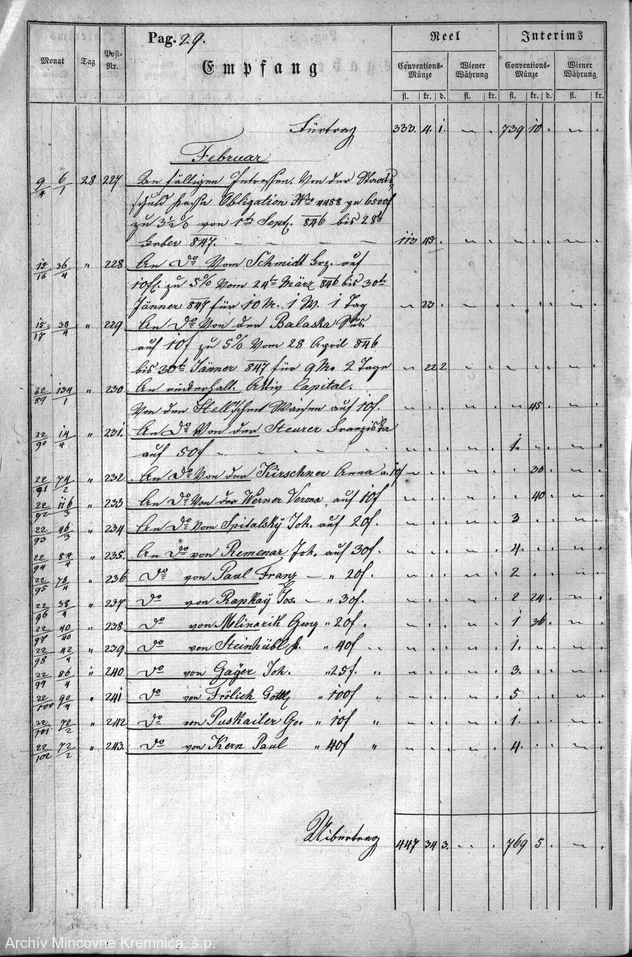 Pag. 29. Reel Interims
Monat Tag Post-Nr. Empfang Conventions-Münze Wiener Währung Conventions-Münze Wiener Währung
fl. kr. d. fl. kr. fl. kr. d. fl. kr.
Fürtrag 333. 4. 1. 739 10.
Februar
9/4 6/1 28 227 An fälligen Interessen. Von der Staats
schuld Obligation No 4488 zu 6500f
zu 3 1/2 % von 1ten Sept. 846 bis 28t
847. 112 43.
18/16 36/4 " 228 An Do Vom Schmidt auf
10f. zu 5% Vom 24ten März 846 bis 30ten
Jänner 847 für 10 M. 1 W. 1 Tag 23.
18/17 38/4 " 229 An Do Von der Balaska
auf 10f zu 5% Vom 28 April 846
bis 30ten Jänner 847 für 9 Mo 2 Tage 22 2
22/89 134/1 " 230 An Aktiv Capital.
Von den Waisen auf 10f. 45.
22/90 14/4 " 231. An Do Von der Steurer Franziska
auf 50f 1.
22/91 74/2 " 232. An Do Von der Kirschner Anna a 10f 30.
22/92 116/3 " 233 An Do Von der Werner Verona auf 10f 40.
22/93 46/3 " 234 An Do Vom Spitalsky Joh. auf 20f. 3
22/94 84/4 " 235. An Do von Remenar Joh. auf 30f. 4.
22/95 78/4 " 236 Do von Paul Franz — " 20f. 2
22/96 38/4 " 237 Do von Rapkay Jos. — " 30f. 2 24
22/97 40/40 " 238 Do von Mlinarik Georg " 20f. 1 36
22/98 42/4 " 239 Do von Steinhübl J. " 40f 1.
22/99 86/4 " 240 Do von Gäger Joh. " 25f. " 3.
22/100 92/4 " 241 Do von Frölich Gottl. " 100f " 5
22/101 70/2 " 242 Do von Puskailer Geo. " 10f " 1.
22/102 72/2 " 243. Do von Kern Paul " 40f " 4.
Uibertrag 447 34 3. 769 5.
Archív Mincovne Kremnica, š.p.